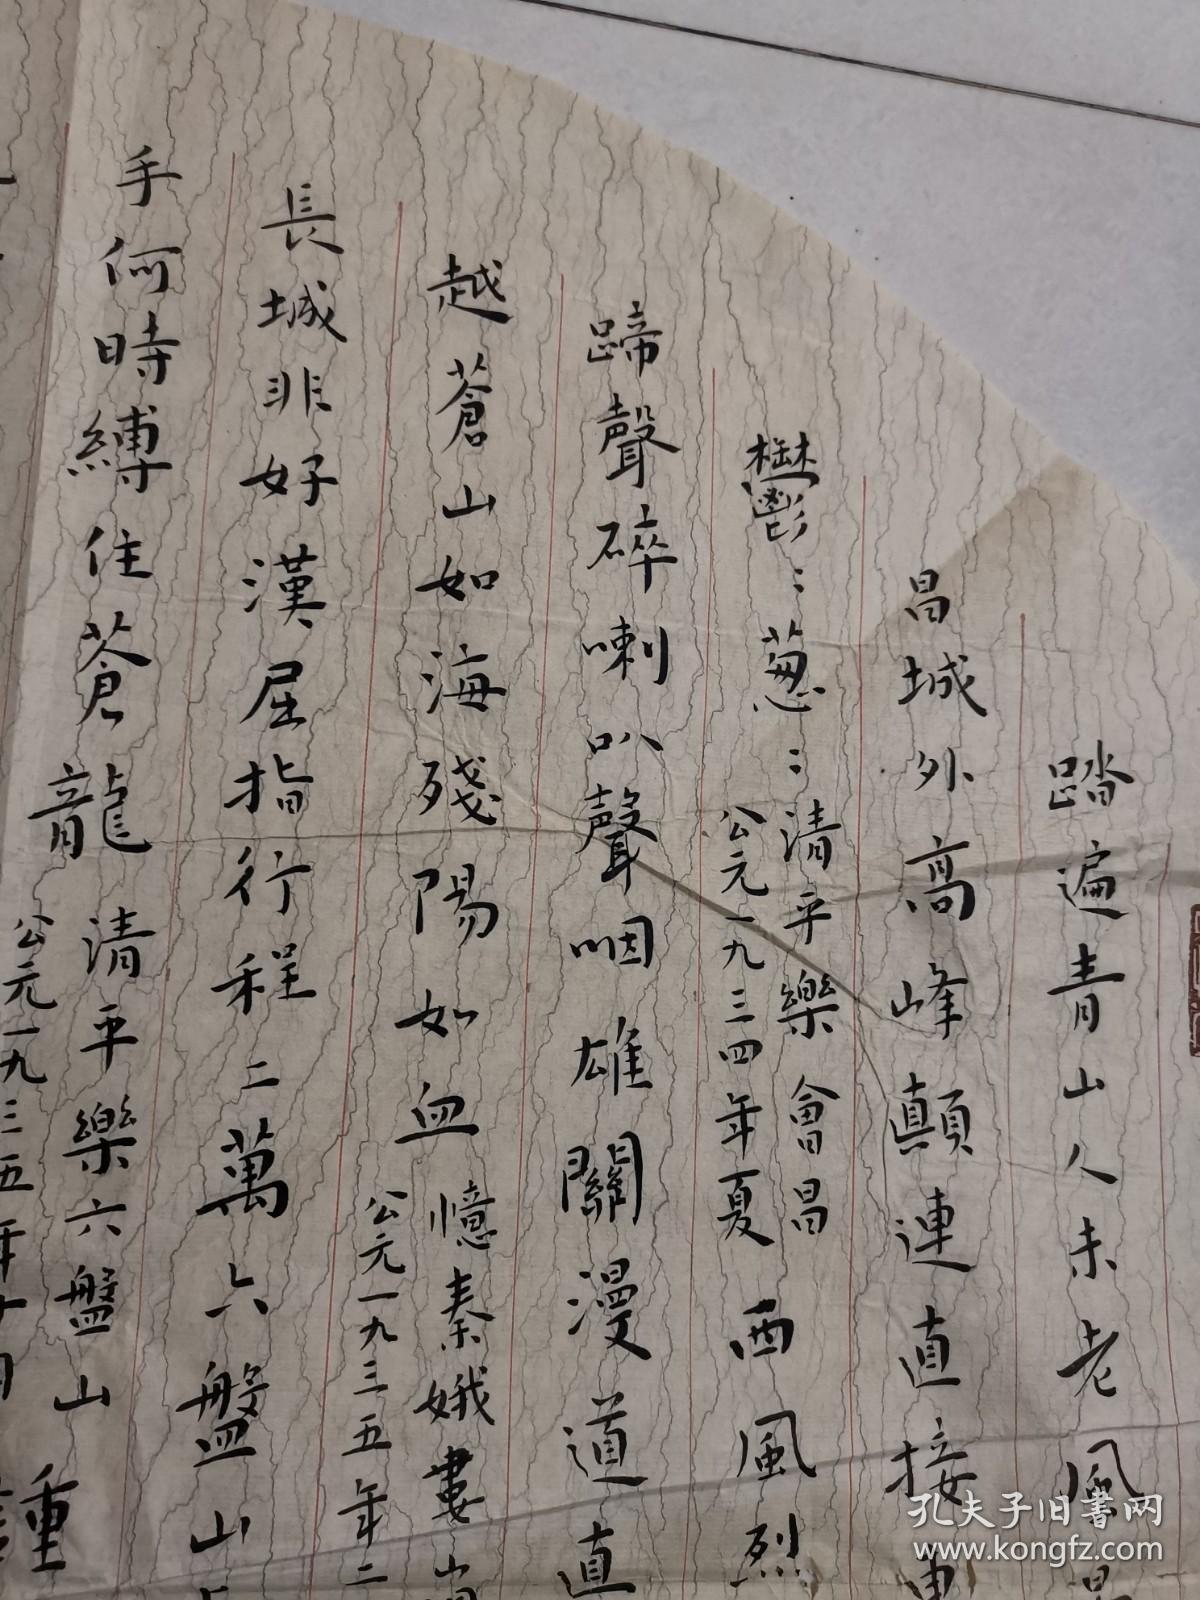 踏遍青山人未老風景
昌城外高峰顛連直接東
鬱〻葱〻清平樂會昌
公元一九三四年夏
西風烈
蹄聲碎喇叭聲咽雄關漫道直
越蒼山如海殘陽如血憶秦娥婁山關
公元一九三五年二
長城非好漢屈指行程二萬六盤山上
手何時縛住蒼龍清平樂六盤山
公元一九三五年十月
重
孔夫子旧书网
www.kongfz.com